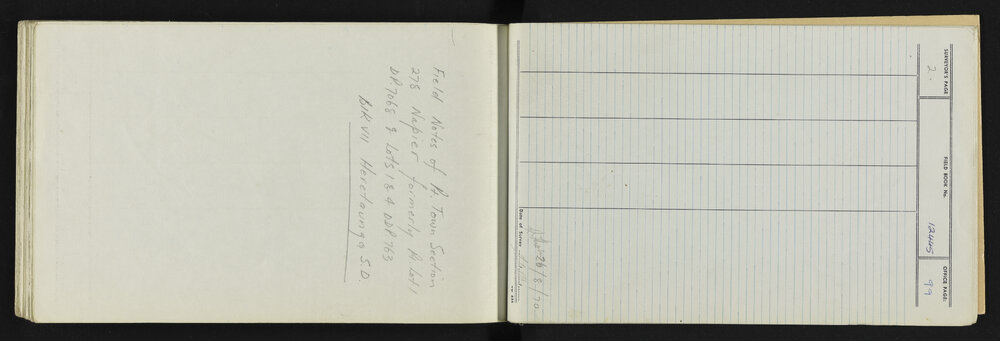 Field Notes of Pt. Town Section
278 Napier formerly Pt Lot 1
DP 7068 & Lots 1 & 4 DDP 763
Blk VII Heretaunga S.D.
SURVEYOR'S PAGE
2.
FIELD BOOK No.
12445
OFFICE PAGE:
99
Date of Survey
26/8/70